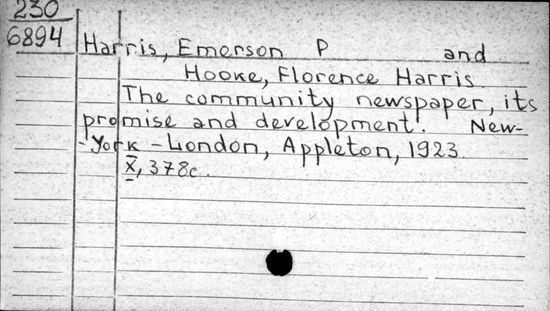 230
6894 Harris, Emerson P and
Hooke, Florence Harris
The community newspaper, its
promise and development. New-
-York - London, Appleton, 1923.
X, 378c.